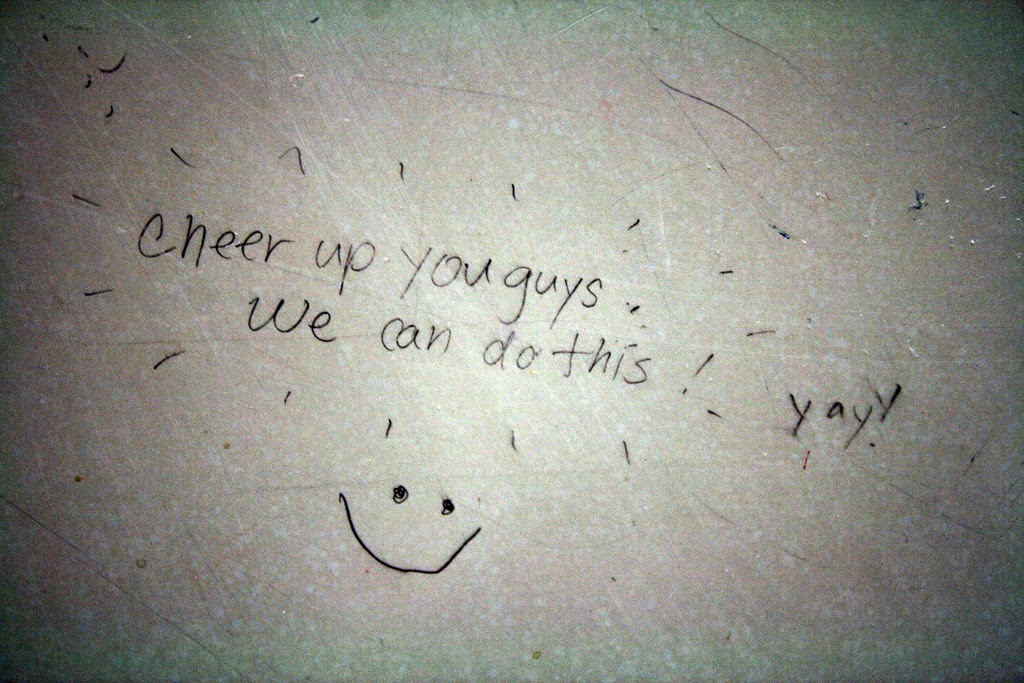 Cheer up you guys.
We can do this!
yay!